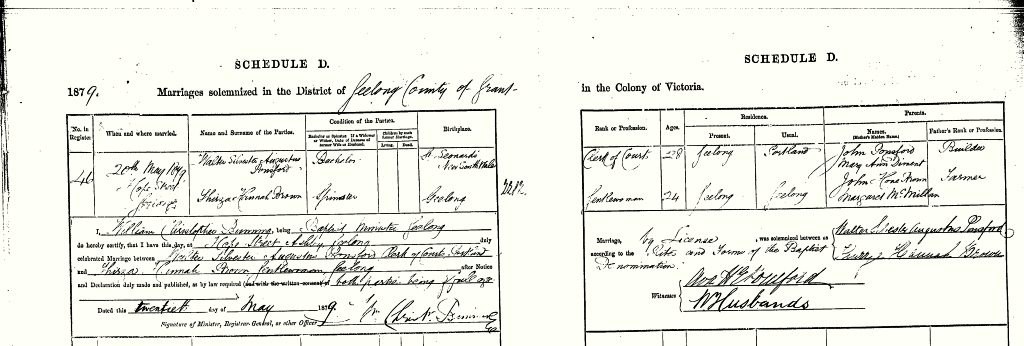 SCHEDULE D.
1879. Marriages solemnized in the District of Geelong County of Grant
No. in Register. When and where married. Name and Surname of the Parties. Condition of the Parties. Birthplace.
Living. Dead.
46 20th May 1879 Walter Silvester Augustus Ponsford Bachelor St. Leonards New South Wales
Hope Street
Thirza Hannah Brown Spinster Geelong
I, William Christopher Bunning, being Baptist Minister Geelong
do hereby certify, that I have this day, at Hope Street Ashby Geelong duly
celebrated Marriage between Walter Silvester Augustus Ponsford Clerk of Courts Portland
and Thirza Hannah Brown Gentlewoman Geelong after Notice
and Declaration duly made and published, as by law required (and with the written consent of both parties being of full age
Dated this twentieth day of May 1879. Wm Christr. Bunning
Signature of Minister, Registrar-General, or other Officer
SCHEDULE D.
in the Colony of Victoria.
Rank or Profession. Ages. Residence. Parents.
Present. Usual. Names. (Mother's Maiden Name) Father's Rank or Profession.
Clerk of Courts 28 Geelong Portland John Ponsford Builder
Mary Ann Diment
Gentlewoman 24 Geelong Geelong John Hone Brown Farmer
Margaret McMillan
Marriage, by License, was solemnized between us Walter Silvester Augustus Ponsford
according to the Rites and Forms of the Baptist Thirza Hannah Brown
Denomination.
Witnesses Ponsford
W Husbands